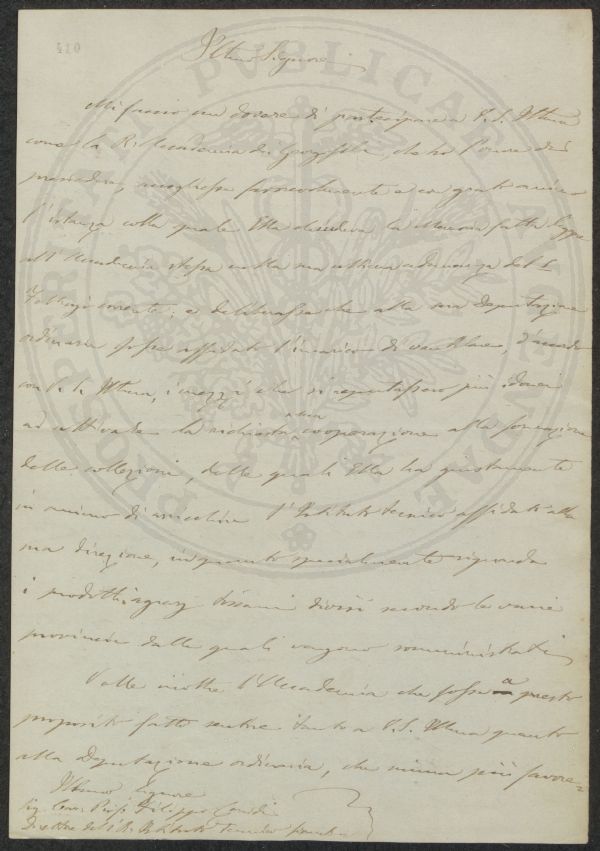 410
PROSPERITATI PUBLICAE AUGENDAE
Illmo Signore
Mi faccio un dovere di partecipare a V.S. Illma
come la R. Accademia dei Georgofili, che ho l'onore di
presiedere, accogliesse favorevolmente e con grato animo
l'istanza colla quale Ella chiudeva la Memoria fatta leggere
all'Accademia stessa nella sua ultima adunanza del I
corrente; e deliberasse che alla sua Deputazione
ordinaria fosse affidato l'incarico di ventilare, d'accordo
con V.S. Illma, i mezzi che si reputassero più idonei
ad attivare la richiesta cooperazione alla formazione
delle collezioni, delle quali Ella ha giustamente
in animo di arricchire l'Istituto tecnico affidato alla
sua direzione, in quanto specialmente riguarda
i prodotti divisi secondo le varie
provincie dalle quali vengono somministrati
Volle inoltre l'Accademia che fosse a questo
proposito fatto sentire tanto a V.S. Illma quanto
alla Deputazione ordinaria, che niuna più favore=
Illmo Signore
Sig. Cav. Prof. Filippo Corridi
Direttore dell'I. R. Istituto Tecnico